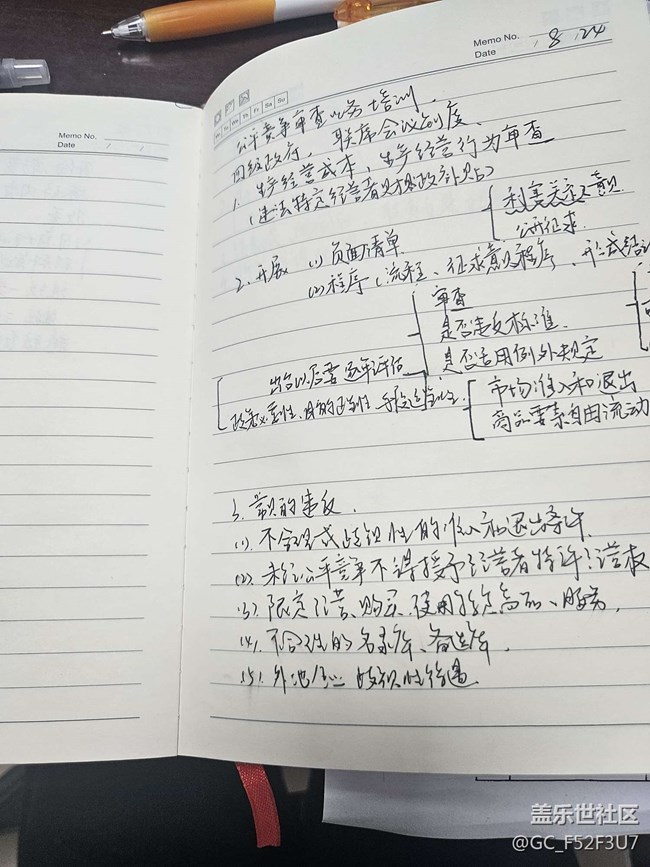 Memo No.
Date
Memo No.
Date 8 24
Mo Tu We Th Fr Sa Su
公平竞争审查业务培训.
同级政府, 联席会议制度.
1. 生产经营成本, 生产经营行为审查
(违法特定经营者财政补贴)
利害关系人意见
公开征求
2. 开展 (1) 负面清单
(2) 程序 (流程、征求意见程序、形成结论
审查
是否违反标准.
是否适用例外规定
出台以后要逐年评估
市场准入和退出
商品要素自由流动
3. 常见的违反.
(1). 不合理或歧视性的准入和退出条件.
(2). 未经公平竞争不得授予经营者特许经营权
(3). 限定经营、购买、使用特定商品、服务.
(4). 不合理的名录库、备选库.
(5). 外地企业 歧视性待遇
盖乐世社区
@GC_F52F3U7